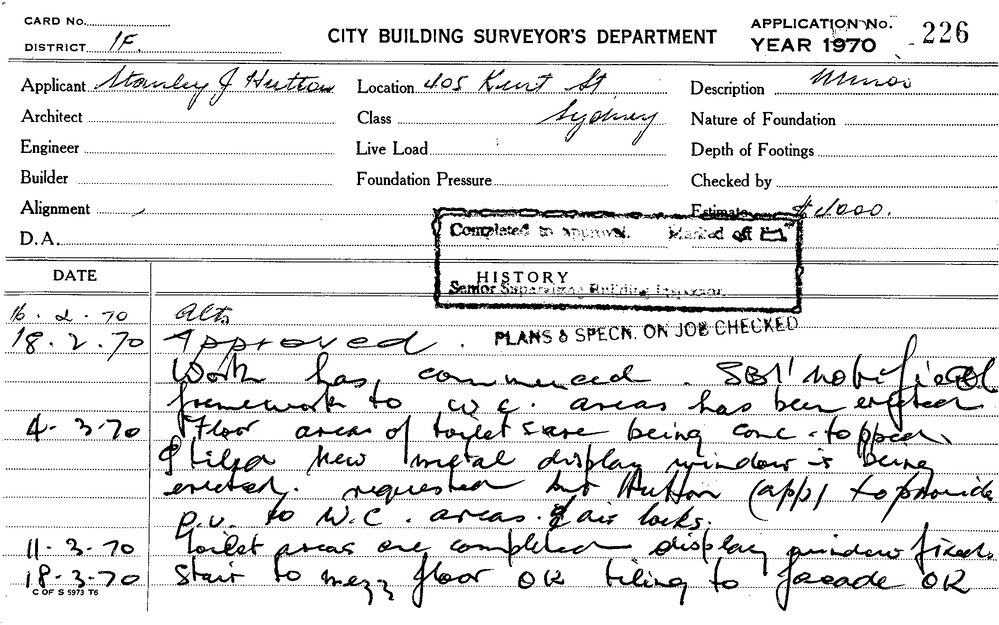 CARD No.
DISTRICT 1F.
CITY BUILDING SURVEYOR'S DEPARTMENT
APPLICATION No. 226
YEAR 1970
Applicant Stanley J Hutton Location 405 Kent St, Description Minor
Architect Class Sydney Nature of Foundation
Engineer Live Load Depth of Footings
Builder Foundation Pressure Checked by
Alignment Estimate $4000.
D.A. Completed to approval. Marked off
DATE HISTORY
Senior Supervising Building Inspector.
16.2.70 Alts
18.2.70 Approved. PLANS & SPECN. ON JOB CHECKED
Work has commenced. SBI notified
framework to W.C. areas has been erected
4.3.70 Floor areas of toilets are being conc. topped
& tiled New metal display window is being
erected. requested Mr Hutton (app) to provide
P.V. to W.C. areas. & air locks.
11.3.70 Toilet areas are completed display window fixed.
18.3.70 Stair to mezz floor OK tiling to facade OK
C OF S 5973 T6